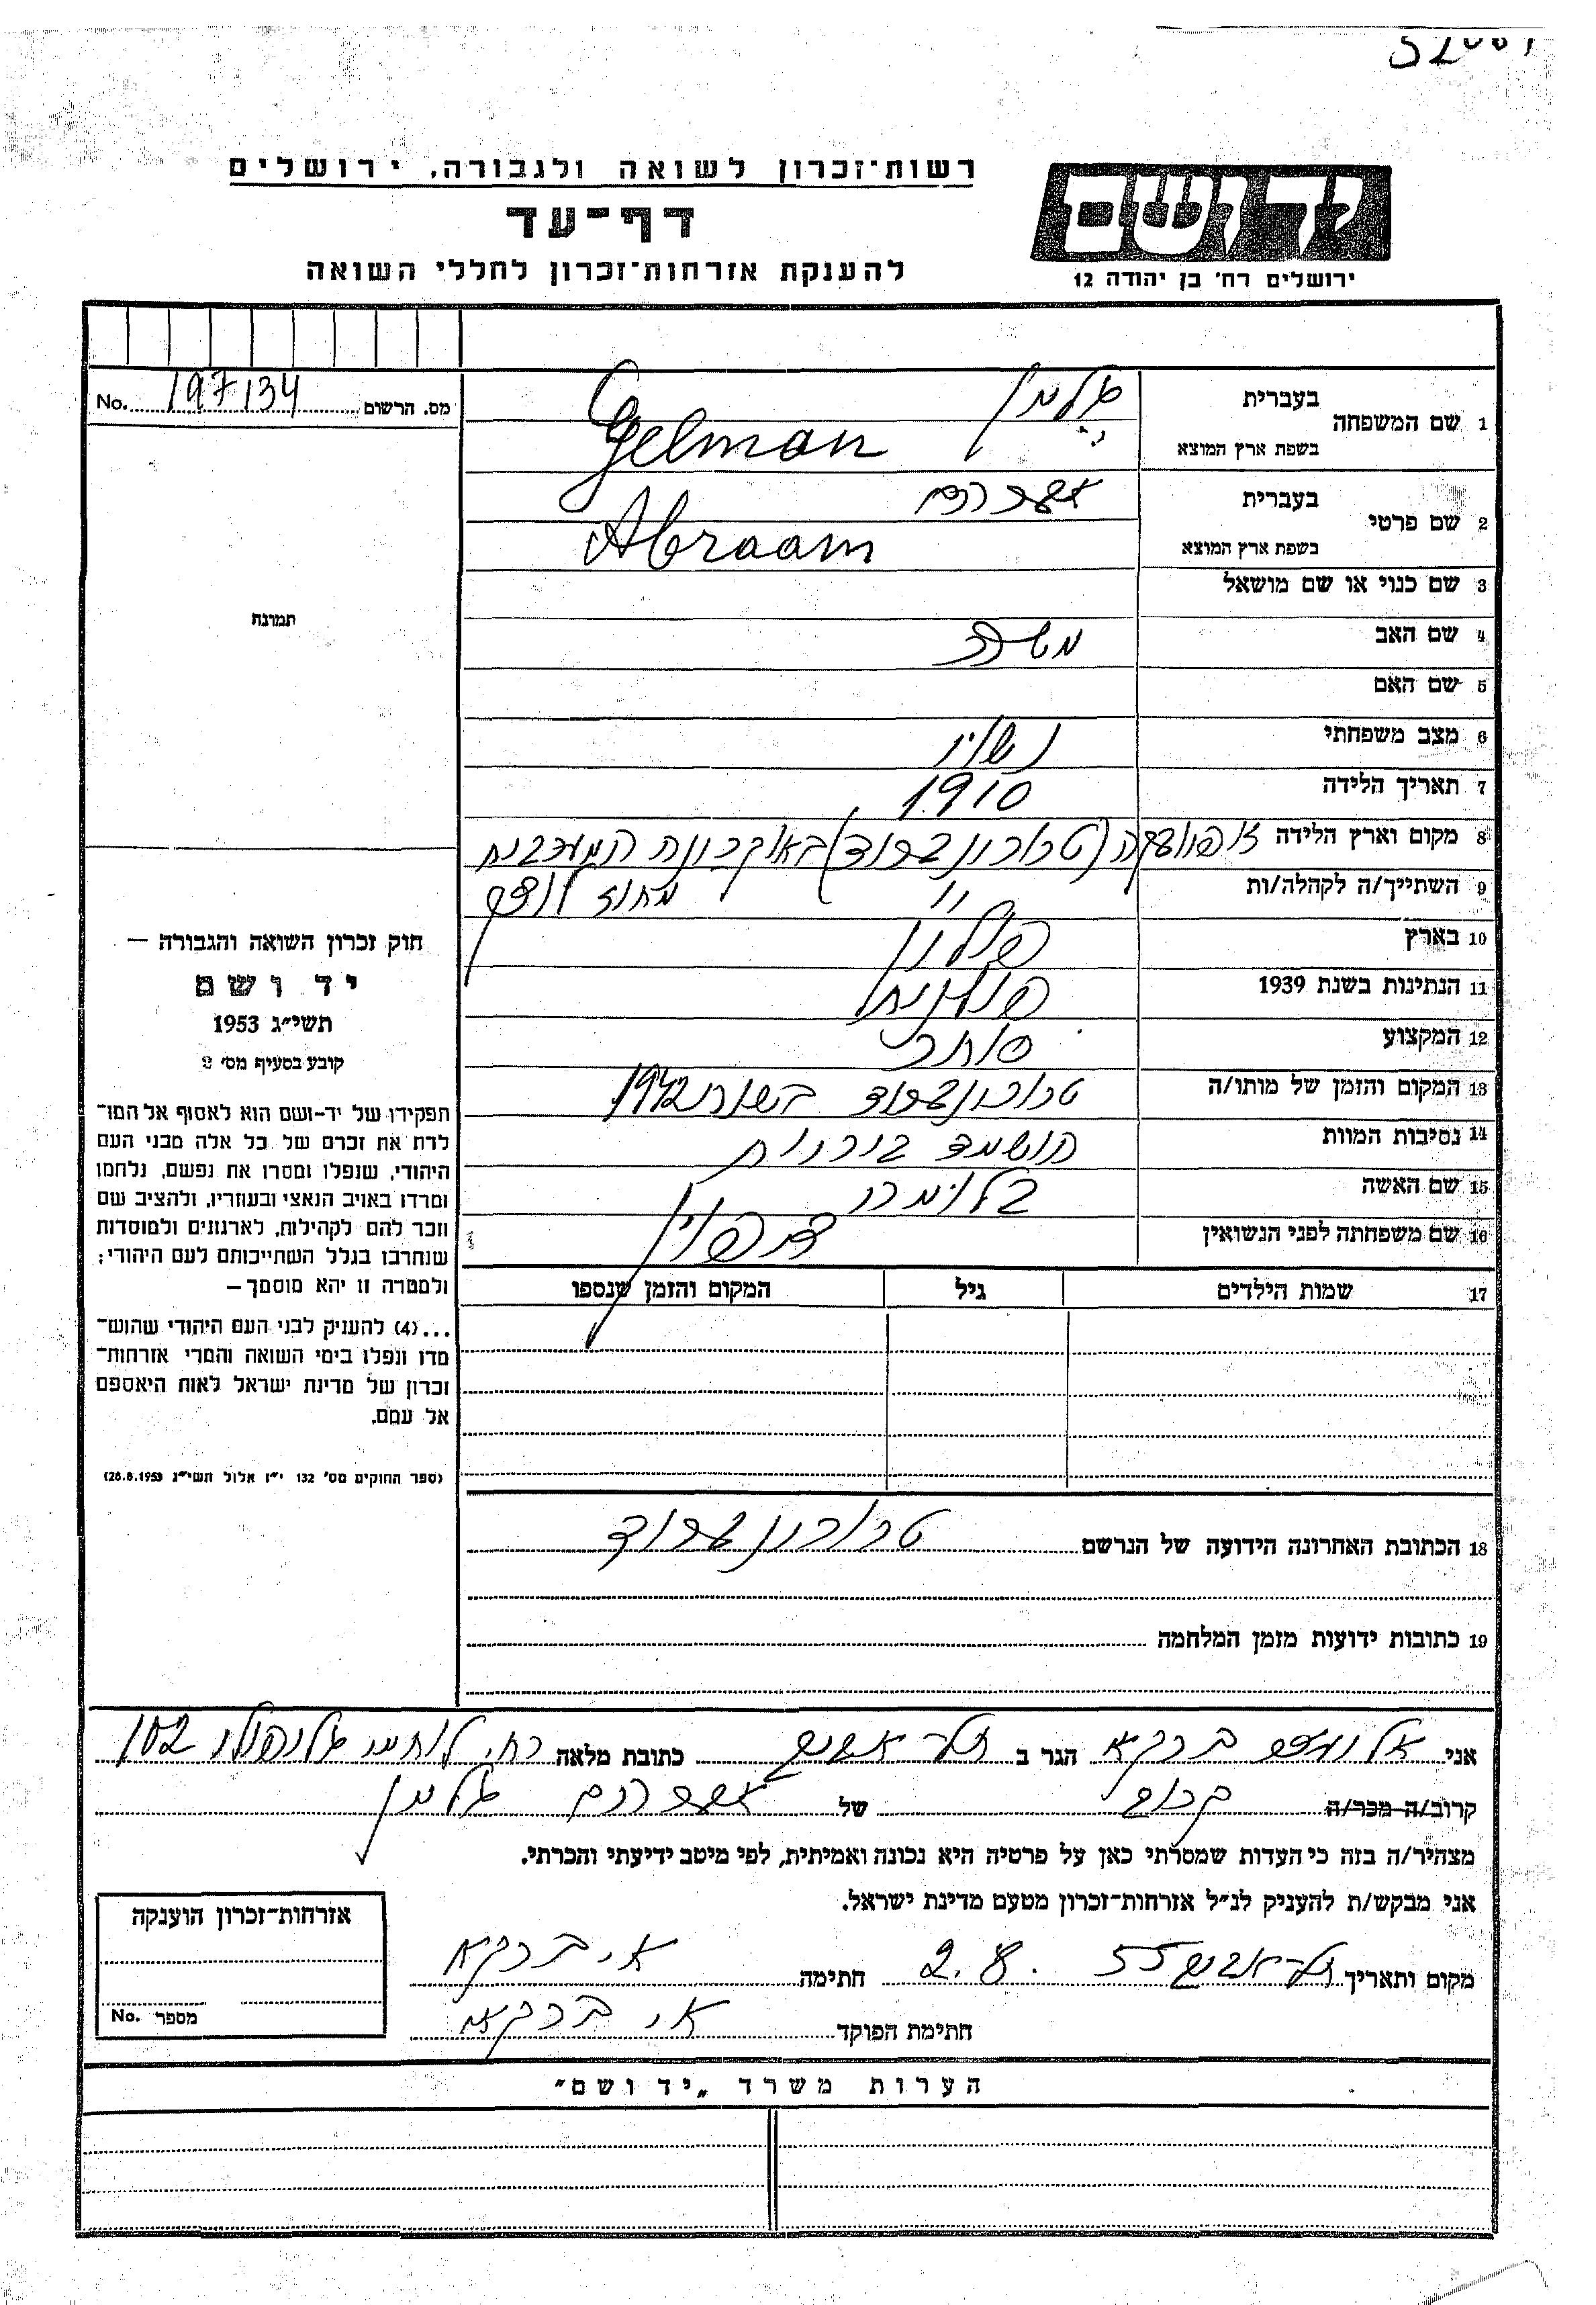 רשות־זכרון לשואה ולגבורה, ירושלים
דף־עד
להענקת אזרחות־זכרון לחללי השואה
יד ושם
ירושלים רח' בן יהודה 12
מס. הרשום 197134 No.
תמונה
1 שם המשפחה בעברית גלמן
בשפת ארץ המוצא Gelman
2 שם פרטי בעברית אברהם
בשפת ארץ המוצא Abraam
3 שם כנוי או שם מושאל
4 שם האב משה
5 שם האם
6 מצב משפחתי נשוי
7 תאריך הלידה 1910
8 מקום וארץ הלידה (טרוכנברוד) באוקרינה המערבית
9 השתייך/ה לקהלה/ות " מחוז לוצק
10 בארץ פולין
11 הנתינות בשנת 1939 פולנית
12 המקצוע סוחר
13 המקום והזמן של מותו/ה טרוכנברוד בשנת 1942
14 נסיבות המוות הושמד בורות
15 שם האשה
16 שם משפחתה לפני הנשואין
17 שמות הילדים גיל המקום והזמן שנספו
חוק זכרון השואה והגבורה —
יד ושם
תשי״ג 1953
קובע בסעיף מס׳ 2
תפקידו של יד־ושם הוא לאסוף אל המו־
לדת את זכרם של כל אלה מבני העם
היהודי, שנפלו ומסרו את נפשם, נלחמו
ומרדו באויב הנאצי ובעוזריו, ולהציב שם
וזכר להם לקהילות, לארגונים ולמוסדות
שנחרבו בגלל השתייכותם לעם היהודי;
ולמטרה זו יהא מוסמך —
...(4) להעניק לבני העם היהודי שהוש־
מדו ונפלו בימי השואה והמרי אזרחות־
זכרון של מדינת ישראל לאות היאספם
אל עמם.
(ספר החוקים מס׳ 132 י״ז אלול תשי״ג 28.8.1953)
18 הכתובת האחרונה הידועה של הנרשם טרוכנברוד
19 כתובות ידועות מזמן המלחמה
אני ברקא הגר ב תל־אביב כתובת מלאה רח׳ לוחמי גליפולי 102
קרוב/ה מכר/ה קרוב של אברהם גלמן
מצהיר/ה בזה כי העדות שמסרתי כאן על פרטיה היא נכונה ואמיתית, לפי מיטב ידיעתי והכרתי.
אני מבקש/ת להעניק לנ״ל אזרחות־זכרון מטעם מדינת ישראל.
מקום ותאריך תל־אביב 2.8.55 חתימה א׳ ברקא
חתימת הפוקד א׳ ברקא
אזרחות־זכרון הוענקה
מספר No.
הערות משרד „יד ושם״